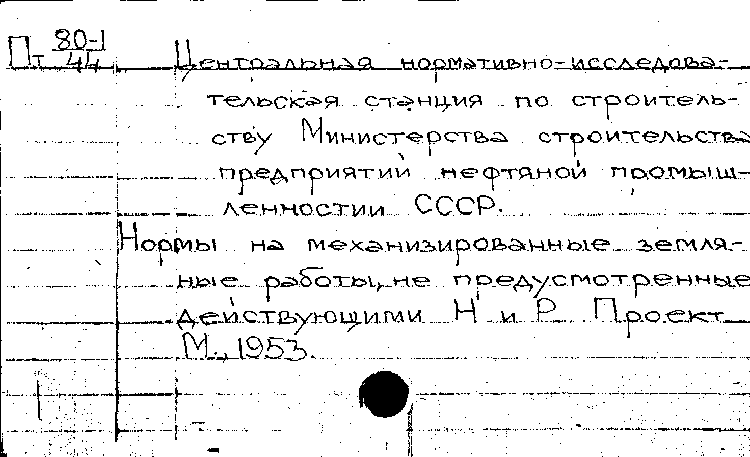 Пт 80-1/44 Центральная нормативно-исследова-
тельская станция по строитель-
ству Министерства строительства
предприятий нефтяной промыш-
ленностии СССР.
Нормы на механизированные земля-
ные работы, не предусмотренные
действующими Н и Р. Проект
М., 1953.